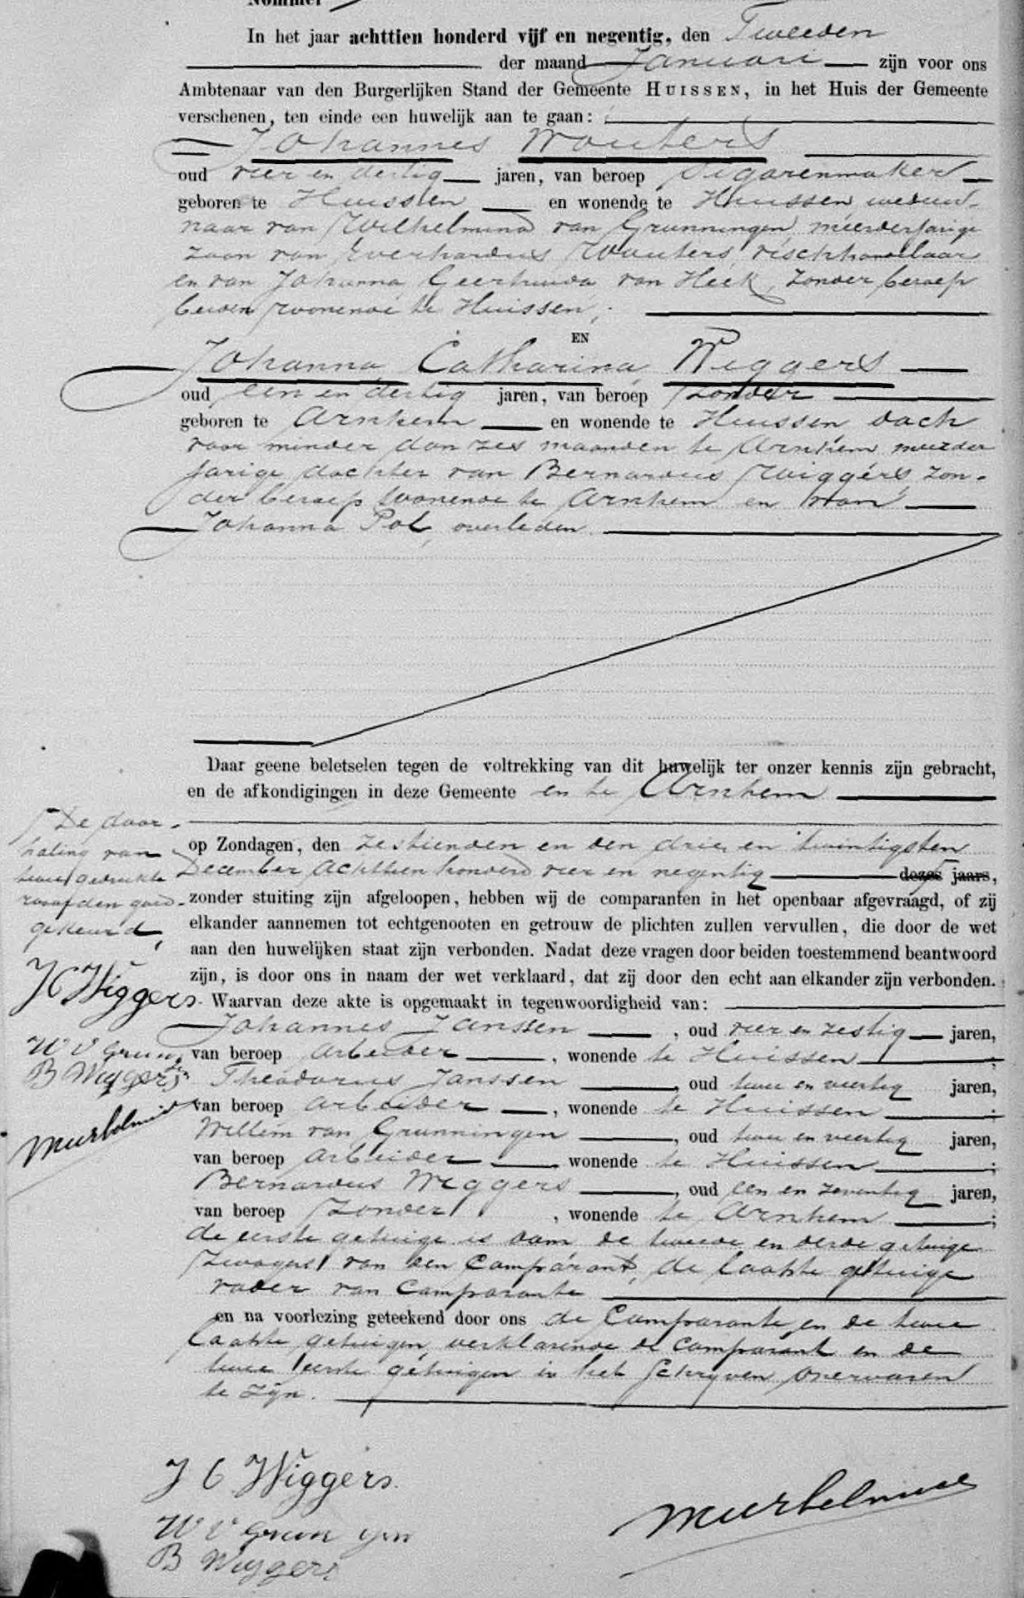 Nommer
In het jaar achttien honderd vijf en negentig, den Tweeden
der maand Januari zijn voor ons
Ambtenaar van den Burgerlijken Stand der Gemeente HUISSEN, in het Huis der Gemeente
verschenen, ten einde een huwelijk aan te gaan:
Johannes Wouters
oud vier en dertig jaren, van beroep Sigarenmaker
geboren te Huissen en wonende te Huissen weduw-
naar van Wilhelmina van Grunningen, meerderjarige
zoon van Everhardus Wouters, vischhandelaar
en van Johanna Geertruida van Heek, zonder beroep
beiden wonende te Huissen,
EN
Johanna Catharina Wiggers
oud een en dertig jaren, van beroep zonder
geboren te Arnhem en wonende te Huissen doch
voor minder dan zes maanden te Arnhem meerder
jarige dochter van Bernardus Wiggers, zon-
der beroep wonende te Arnhem en van
Johanna Pol, overleden.
Daar geene beletselen tegen de voltrekking van dit huwelijk ter onzer kennis zijn gebracht,
en de afkondigingen in deze Gemeente en te Arnhem
op Zondagen, den zestienden en den drie en twintigsten
December achttien honderd vier en negentig dezes jaars,
zonder stuiting zijn afgeloopen, hebben wij de comparanten in het openbaar afgevraagd, of zij
elkander aannemen tot echtgenooten en getrouw de plichten zullen vervullen, die door de wet
aan den huwelijken staat zijn verbonden. Nadat deze vragen door beiden toestemmend beantwoord
zijn, is door ons in naam der wet verklaard, dat zij door den echt aan elkander zijn verbonden.
Waarvan deze akte is opgemaakt in tegenwoordigheid van:
Johannes Janssen, oud vier en zestig jaren,
van beroep arbeider, wonende te Huissen;
Theodorus Janssen, oud twee en veertig jaren,
van beroep arbeider, wonende te Huissen;
Willem van Grunningen, oud twee en veertig jaren,
van beroep arbeider wonende te Huissen;
Bernardus Wiggers, oud een en zeventig jaren,
van beroep zonder, wonende te Arnhem;
de eerste getuige is oom de tweede en derde getuige
zwagers van den Comparant, de laatste getuige
vader van Comparante
en na voorlezing geteekend door ons de Comparante en de twee
laatste getuigen, verklarende de Comparant en de
twee eerste getuigen in het schrijven onervaren
te zijn.
De door-
haling van
twee gedrukte
woorden goed-
gekeurd,
J C Wiggers
W V Grun
B Wiggers
J C Wiggers.
W V Grun gen
B Wiggers